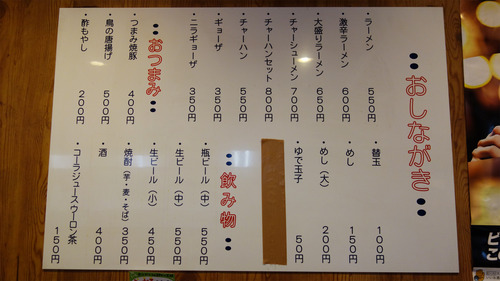 :おしながき:
・ラーメン 550円
・激辛ラーメン 600円
・大盛りラーメン 650円
・チャーシューメン 700円
・チャーハンセット 800円
・チャーハン 550円
・ギョーザ 350円
・ニラギョーザ 350円
:おつまみ:
・つまみ焼豚 400円
・鳥の唐揚げ 500円
・酢もやし 200円
・替玉 100円
・めし 150円
・めし(大) 200円
・ゆで玉子 50円
:飲み物:
・瓶ビール(中) 550円
・生ビール(中) 550円
・生ビール(小) 450円
・焼酎(芋・麦・そば) 350円
・酒 400円
・コーラジュースウーロン茶 150円